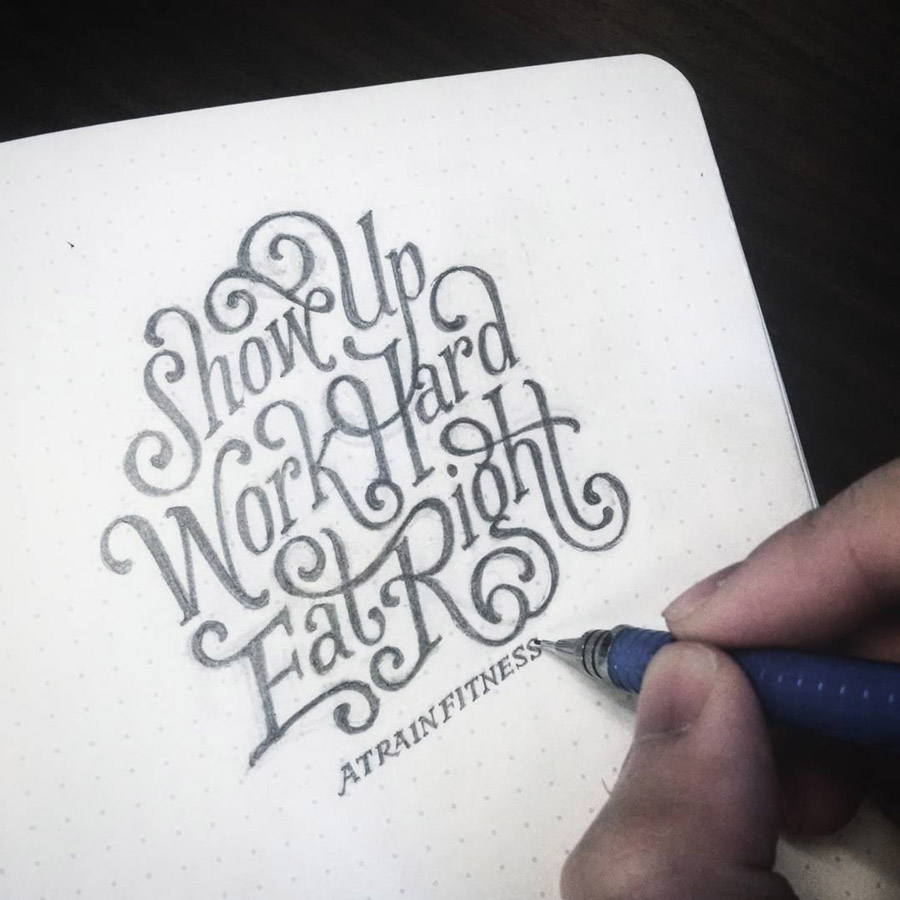 Show Up
Work Hard
Eat Right
ATRAINFITNESS